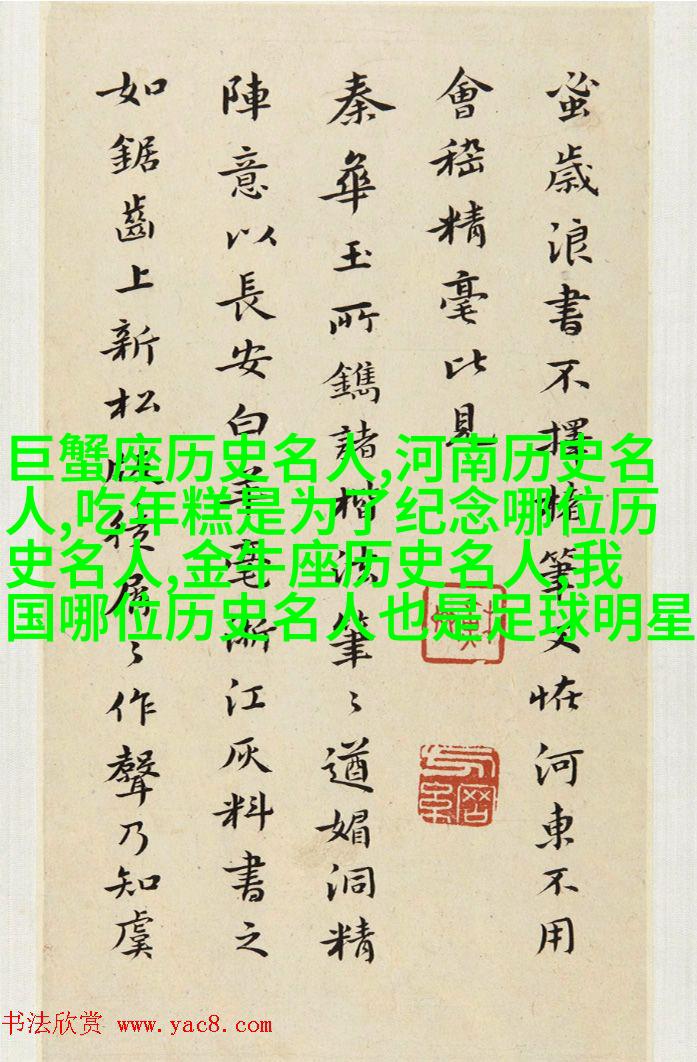 蚤歲浪書不擇筆又恠河東不用
會稽精毫比見
秦華玉所鐫諸楷法筆〻遒媚洞精
陣意以長安白羊毫浙江灰料書之
如鋸齒上新松屑〻作聲乃知虞
巨蟹座历史名人,河南历史名
人,吃年糕是为了纪念哪位历
史名人,金牛座历史名人,我
国哪位历史名人也是足球明星
书法欣赏 www.yac8.com